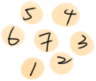 5 4
6 7 3
1 2